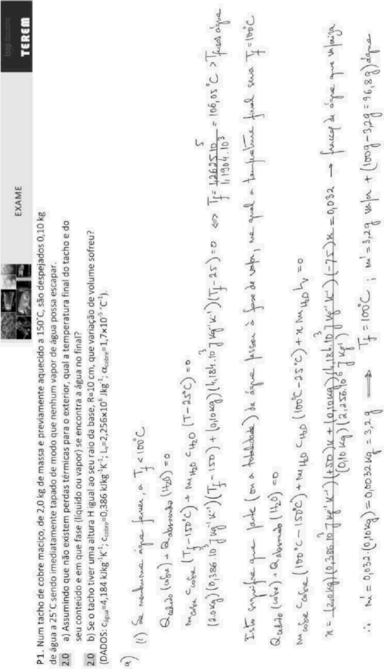 TEREM
EXAME
P1. Num tacho de cobre maciço, de 2,0 kg de massa e previamente aquecido a 150°C, são despejados 0,10 kg
de água a 25°C sendo imediatamente tapado de modo que nenhum vapor de água possa escapar.
2.0 a) Assumindo que não existem perdas térmicas para o exterior, qual a temperatura final do tacho e do
seu conteúdo e em que fase (líquido ou vapor) se encontra a água no final?
2.0 b) Se o tacho tiver uma altura H igual ao seu raio da base, R=10 cm, que variação de volume sofreu?
(DADOS: c_água=4,184 kJkg⁻¹K⁻¹; c_cobre=0,386 kJkg⁻¹K⁻¹; L_v=2,256x10⁶ Jkg⁻¹; α_cobre=1,7x10⁻⁵ °C⁻¹).
a)
(i) Se nenhuma água ferver, a T_f < 100°C
Q_cedido (cobre) + Q_absorvido (H₂O) = 0
m_cobre c_cobre (T_f - 150°C) + m_H₂O c_H₂O (T - 25°C) = 0
(2.0kg)(0,386.10³ J kg⁻¹K⁻¹)(T_f - 150) + (0,10kg)(4,184.10³ J kg⁻¹K⁻¹)(T_f - 25) = 0 ⇔ T_f = 1,2625.10⁵ / 1,1904.10³ = 106,05°C > T água
Isto significa que parte (ou a totalidade) da água passou à fase de vapor, na qual a temperatura final será T_f = 100°C
Q_cedido (cobre) + Q_absorvido (H₂O) = 0
m_cobre c_cobre (100°C - 150°C) + m_H₂O c_H₂O (100°C - 25°C) + x m_H₂O L_v = 0
x = (2,0kg)(0,386.10³ J kg⁻¹K⁻¹)(+50)K + (0,10kg)(4,184.10³ J kg⁻¹K⁻¹)(-75)K / (0,10 kg)(2,256.10⁶ J kg⁻¹) = 0,032 → fracção de água que vaporiza
∴ m' = 0,032.(0,10kg) = 0,0032 kg = 3,2 g → T_f = 100°C ; m' = 3,2g vapor + (100g - 3,2g = 96,8g) água